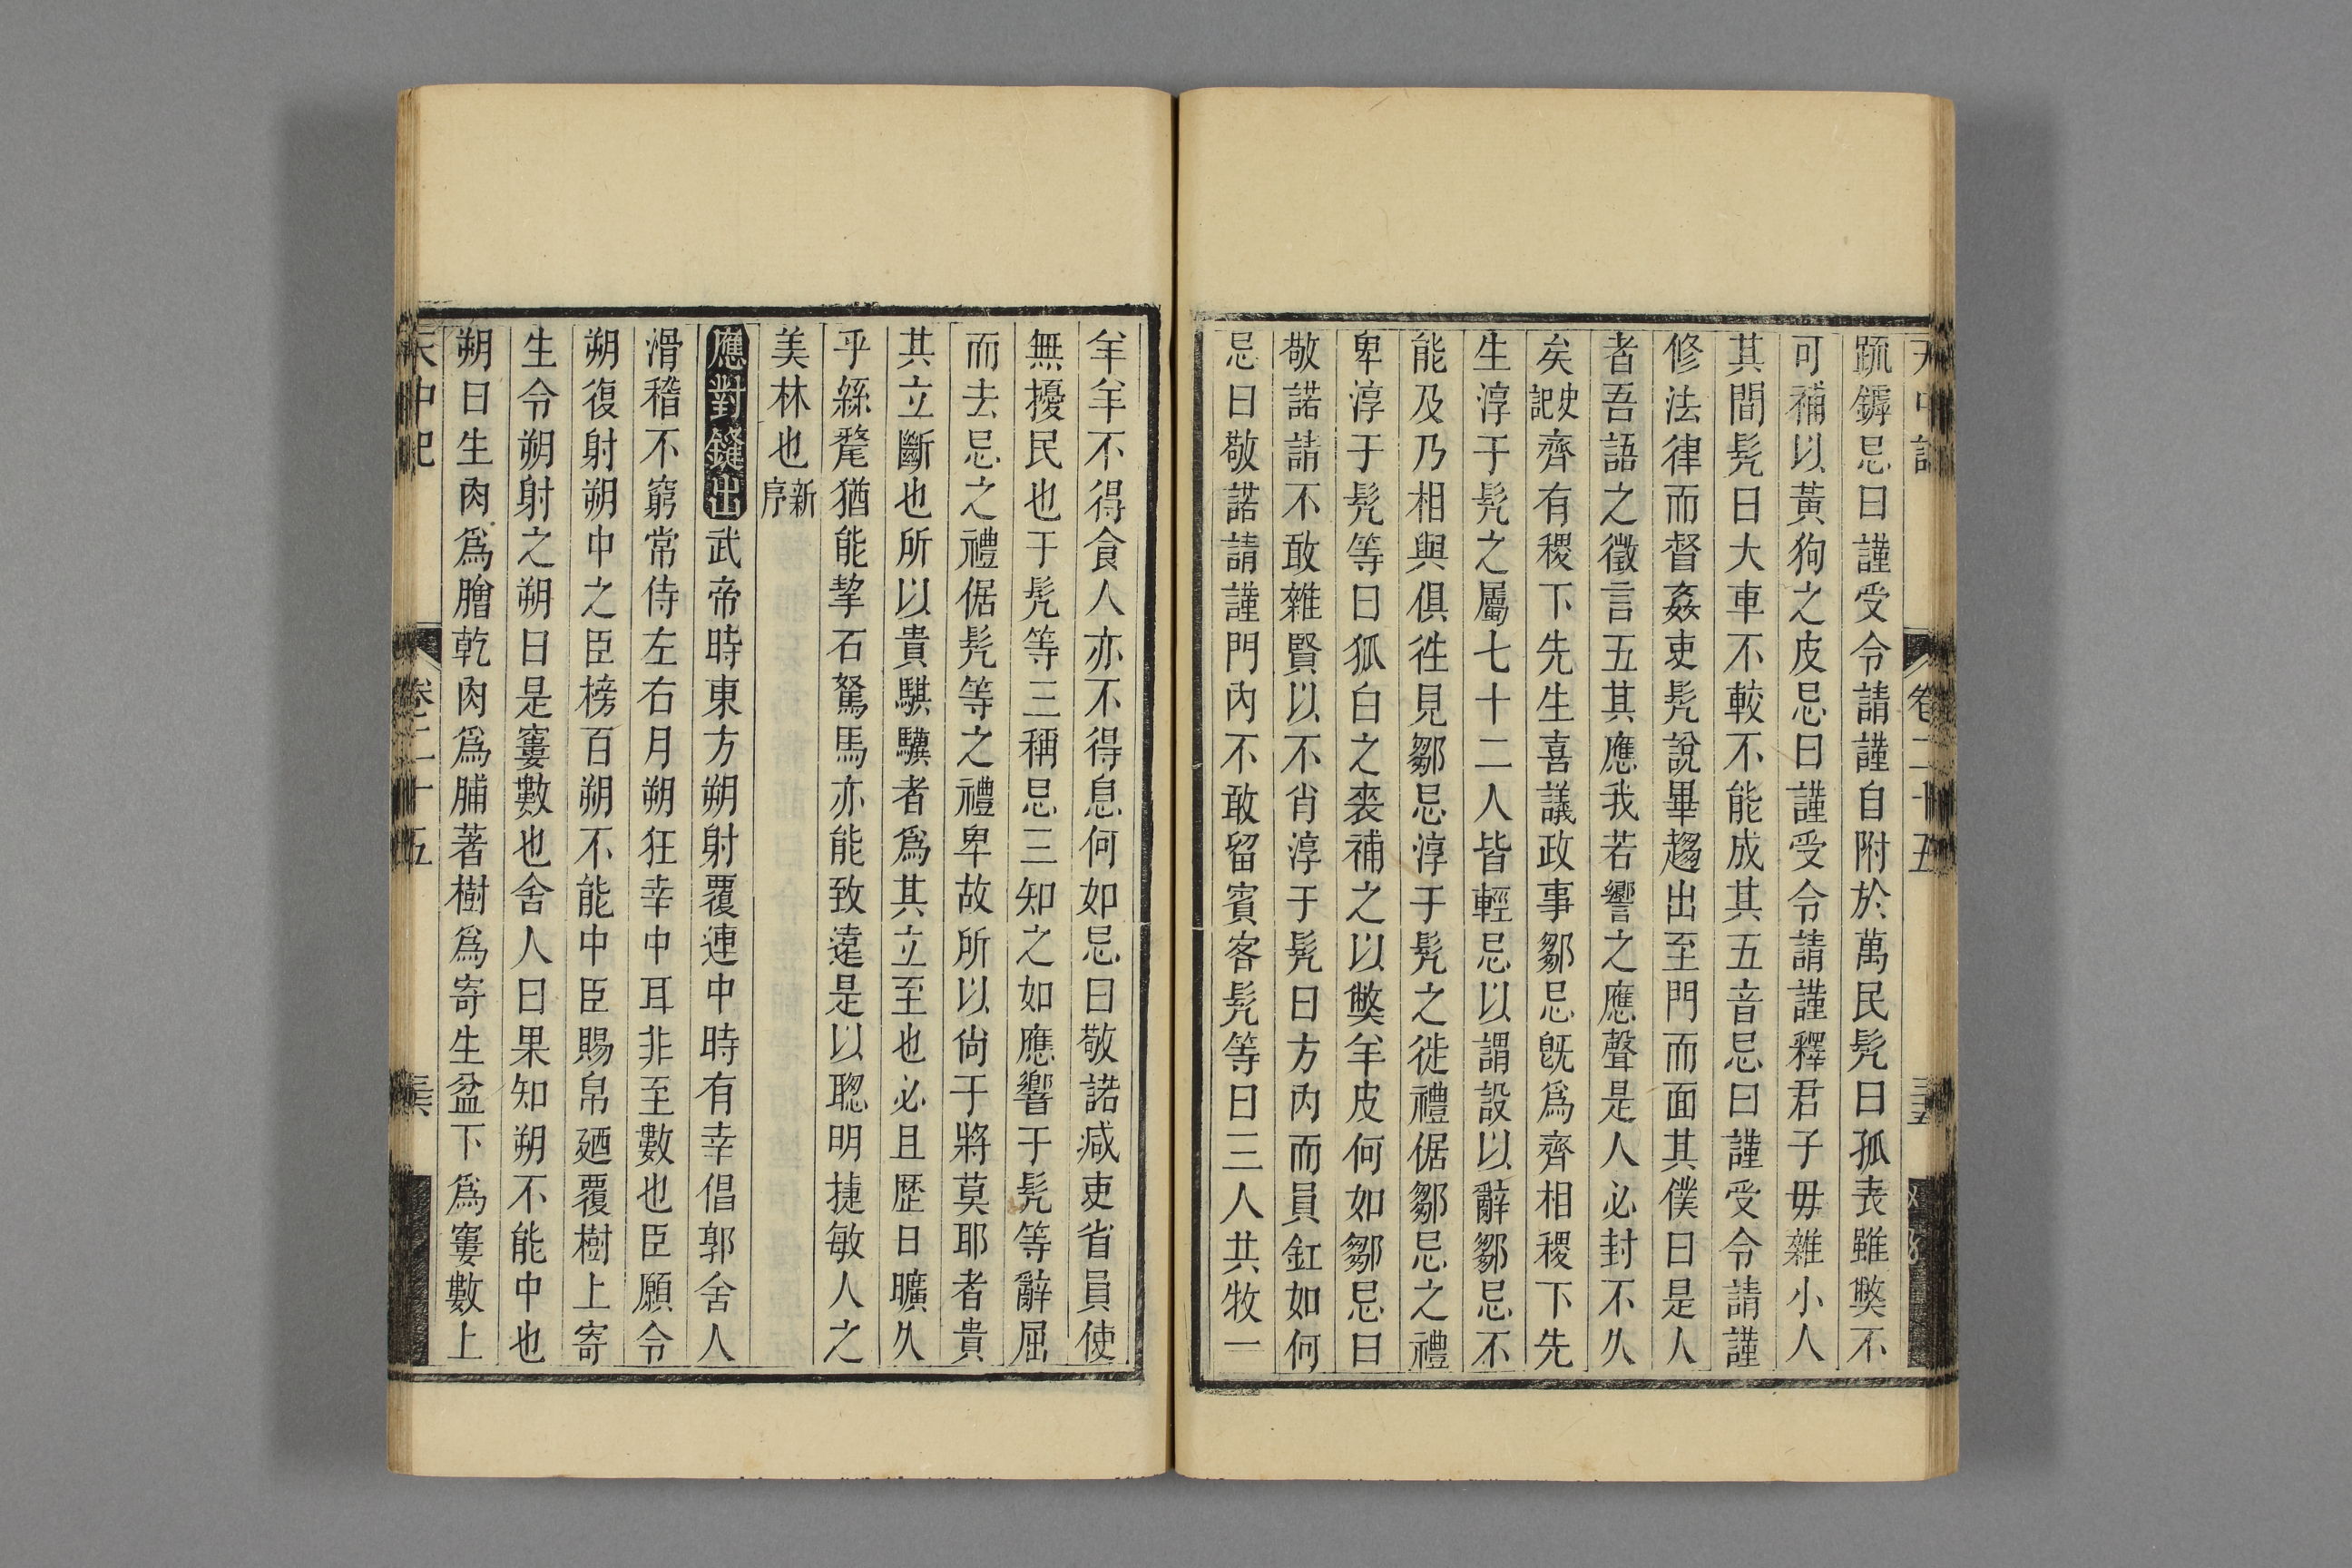 天中記 卷二十五
䟽罅忌曰謹受令請謹自附於萬民髠曰狐裘雖獘不
可補以黃狗之皮忌曰謹受令請謹釋君子毋雜小人
其間髠曰大車不較不能成其五音忌曰謹受令請謹
修法律而督姦吏髠說畢趨出至門而面其僕曰是人
者吾語之微言五其應我若響之應聲是人必封不久
矣史記齊有稷下先生喜議政事鄒忌旣爲齊相稷下先
生淳于髠之屬七十二人皆輕忌以謂設以辭鄒忌不
能及乃相與俱徃見鄒忌淳于髠之徒禮倨鄒忌之禮
卑淳于髠等曰狐白之裘補之以獘羊皮何如鄒忌曰
敬諾請不敢雜賢以不肖淳于髠曰方內而員釭如何
忌曰敬諾請謹門內不敢留賓客髠等曰三人共牧一
羊羊不得食人亦不得息何如忌曰敬諾減吏省員使
無擾民也于髠等三稱忌三知之如應響于髠等辭屈
而去忌之禮倨髠等之禮卑故所以尙于將莫耶者貴
其立斷也所以貴騏驥者爲其立至也必且歷日曠久
乎絲氂猶能挈石駑馬亦能致遠是以聦明捷敏人之
美林也新序
應對鋒出武帝時東方朔射覆連中時有幸倡郭舍人
滑稽不窮常侍左右月朔狂幸中耳非至數也臣願令
朔復射朔中之臣榜百朔不能中臣賜帛廼覆樹上寄
生令朔射之朔曰是窶數也舍人曰果知朔不能中也
朔曰生肉爲膾乾肉爲脯著樹爲寄生盆下爲窶數上
天中記 卷二十五